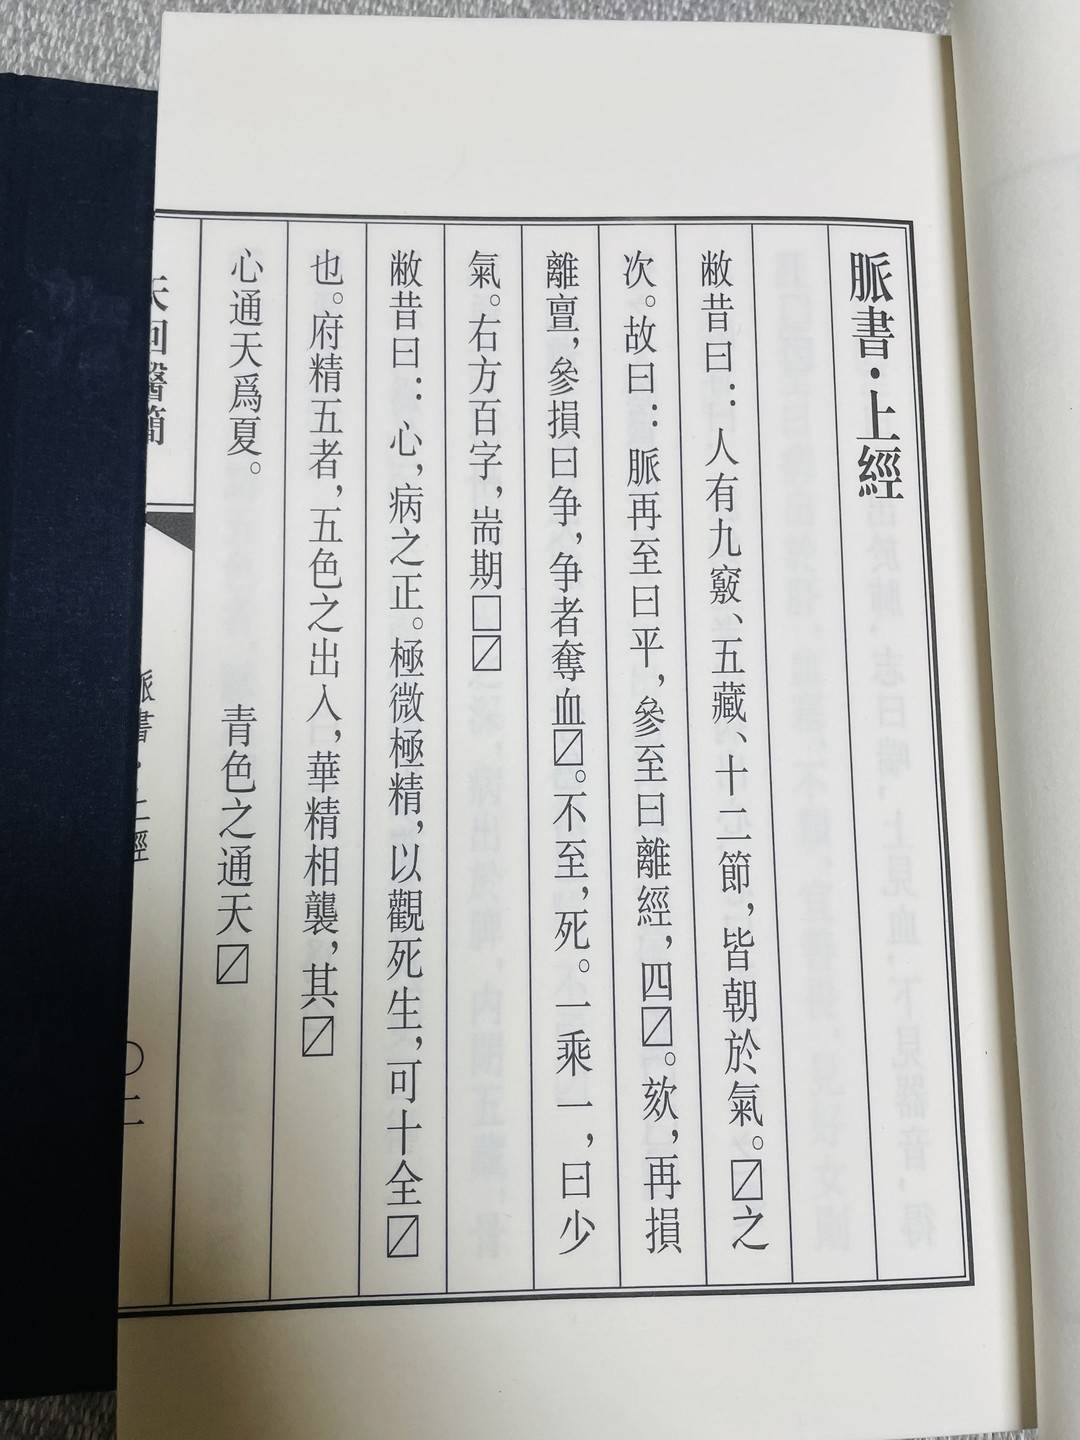 脈書·上經
敝昔曰：人有九竅、五藏、十二節，皆朝於氣。〼之
次。故曰：脈再至曰平，參至曰離經，四〼。欬，再損
離亶，參損曰争，争者奪血〼。不至，死。一乘一，曰少
氣。右方百字，耑期□〼
敝昔曰：心，病之正。極微極精，以觀死生，可十全〼
也。府精五者，五色之出入，華精相襲，其〼
心通天爲夏。 青色之通天〼
天回醫簡
脈書·上經
〇二